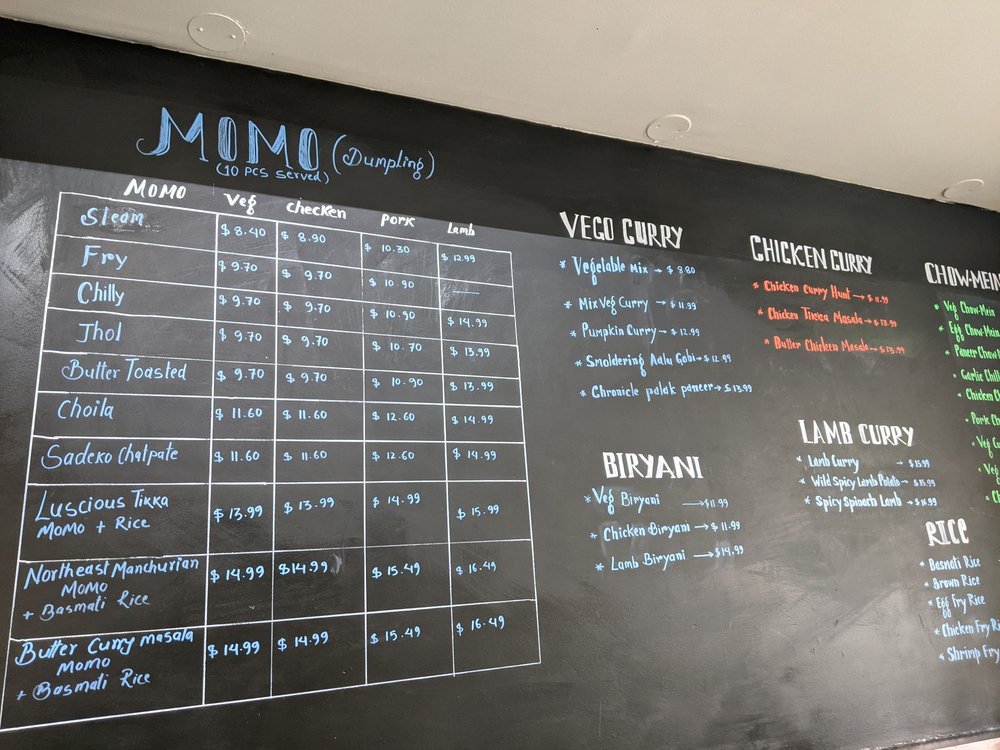 MOMO (Dumpling)
(10 PCS Served)
MOMO Veg checken pork Lamb
Steam $ 8.40 $ 8.90 $ 10.30 $ 12.99
Fry $ 9.70 $ 9.70 $ 10.90 —
Chilly $ 9.70 $ 9.70 $ 10.90 $ 14.99
Jhol $ 9.70 $ 9.70 $ 10.70 $ 13.99
Butter Toasted $ 9.70 $ 9.70 $ 10.90 $ 13.99
Choila $ 11.60 $ 11.60 $ 12.60 $ 14.99
Sadeko Chatpate $ 11.60 $ 11.60 $ 12.60 $ 14.99
Luscious Tikka
MOMO + Rice $ 13.99 $ 13.99 $ 14.99 $ 15.99
Northeast Manchurian
MOMO $ 14.99 $ 14.99 $ 15.49 $ 16.49
+ Basmati Rice
Butter Curry masala
MOMO $ 14.99 $ 14.99 $ 15.49 $ 16.49
+ Basmati Rice
VEGO CURRY
* Vegetable Mix → $ 8.80
* Mix Veg Curry → $ 11.99
* Pumpkin Curry → $ 12.99
* Smoldering Aalu Gobi → $ 12.99
* Chronicle palak paneer → $ 13.99
BIRYANI
* Veg Biryani → $ 11.99
* Chicken Biryani → $ 11.99
* Lamb Biryani → $ 14.99
CHICKEN CURRY
* Chicken Curry Hunt → $ 11.99
* Chicken Tikka Masala → $ 13.99
* Butter Chicken Masala → $ 13.99
LAMB CURRY
* Lamb Curry → $ 15.99
* Wild Spicy Lamb Potato → $ 15.99
* Spicy Spinach Lamb → $ 15.99
CHOW-MEIN
* Veg Chow-Mein
* Egg Chow-Mein
* Paneer Chow-
* Garlic Chill
* Chicken
* Pork
* Veg
* Veg
RICE
* Basmati Rice
* Brown Rice
* Egg Fry Rice
* Chicken Fry
* Shrimp Fry